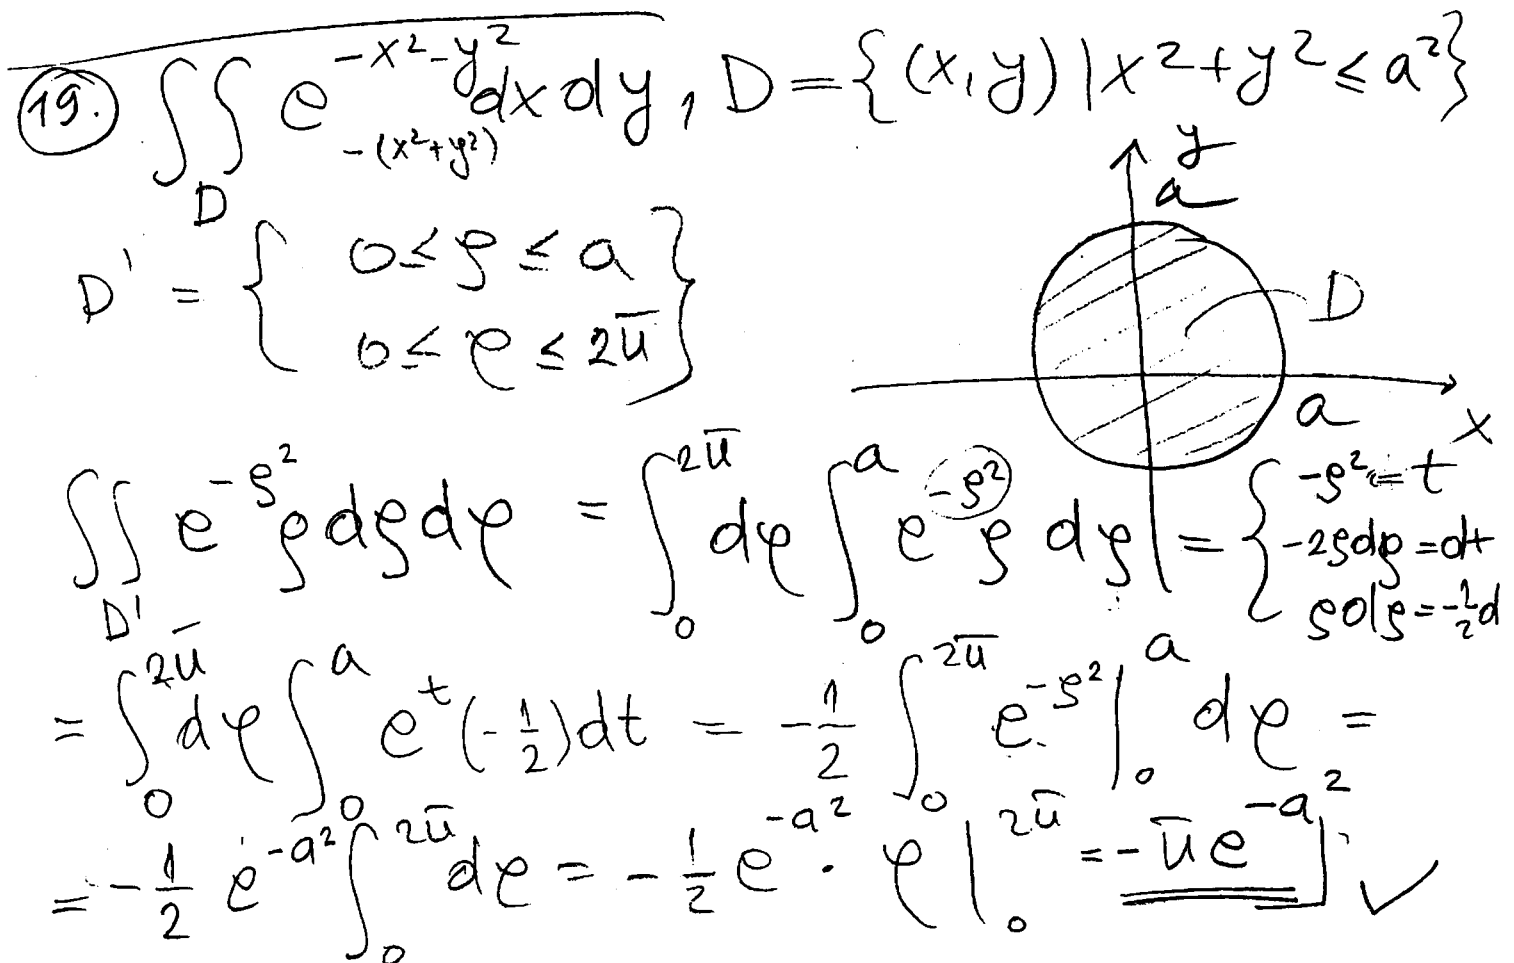 19. ∬_D e^{-x²-y²} dxdy, D={(x,y)|x²+y²≤a²}
-(x²+y²)
y
a
D' = { 0≤ρ≤a
0≤φ≤2π }
D
a
x
∬_{D'} e^{-ρ²} ρdρdφ = ∫_0^{2π} dφ ∫_0^a e^{-ρ²} ρ dρ = { -ρ²=t
-2ρdρ=dt
ρdρ=-½d
= ∫_0^{2π} dφ ∫_0^a e^t (-½)dt = -½ ∫_0^{2π} e^{-ρ²} |_0^a dφ =
= -½ e^{-a²} ∫_0^{2π} dφ = -½ e^{-a²} · φ |_0^{2π} = -πe^{-a²} ✓